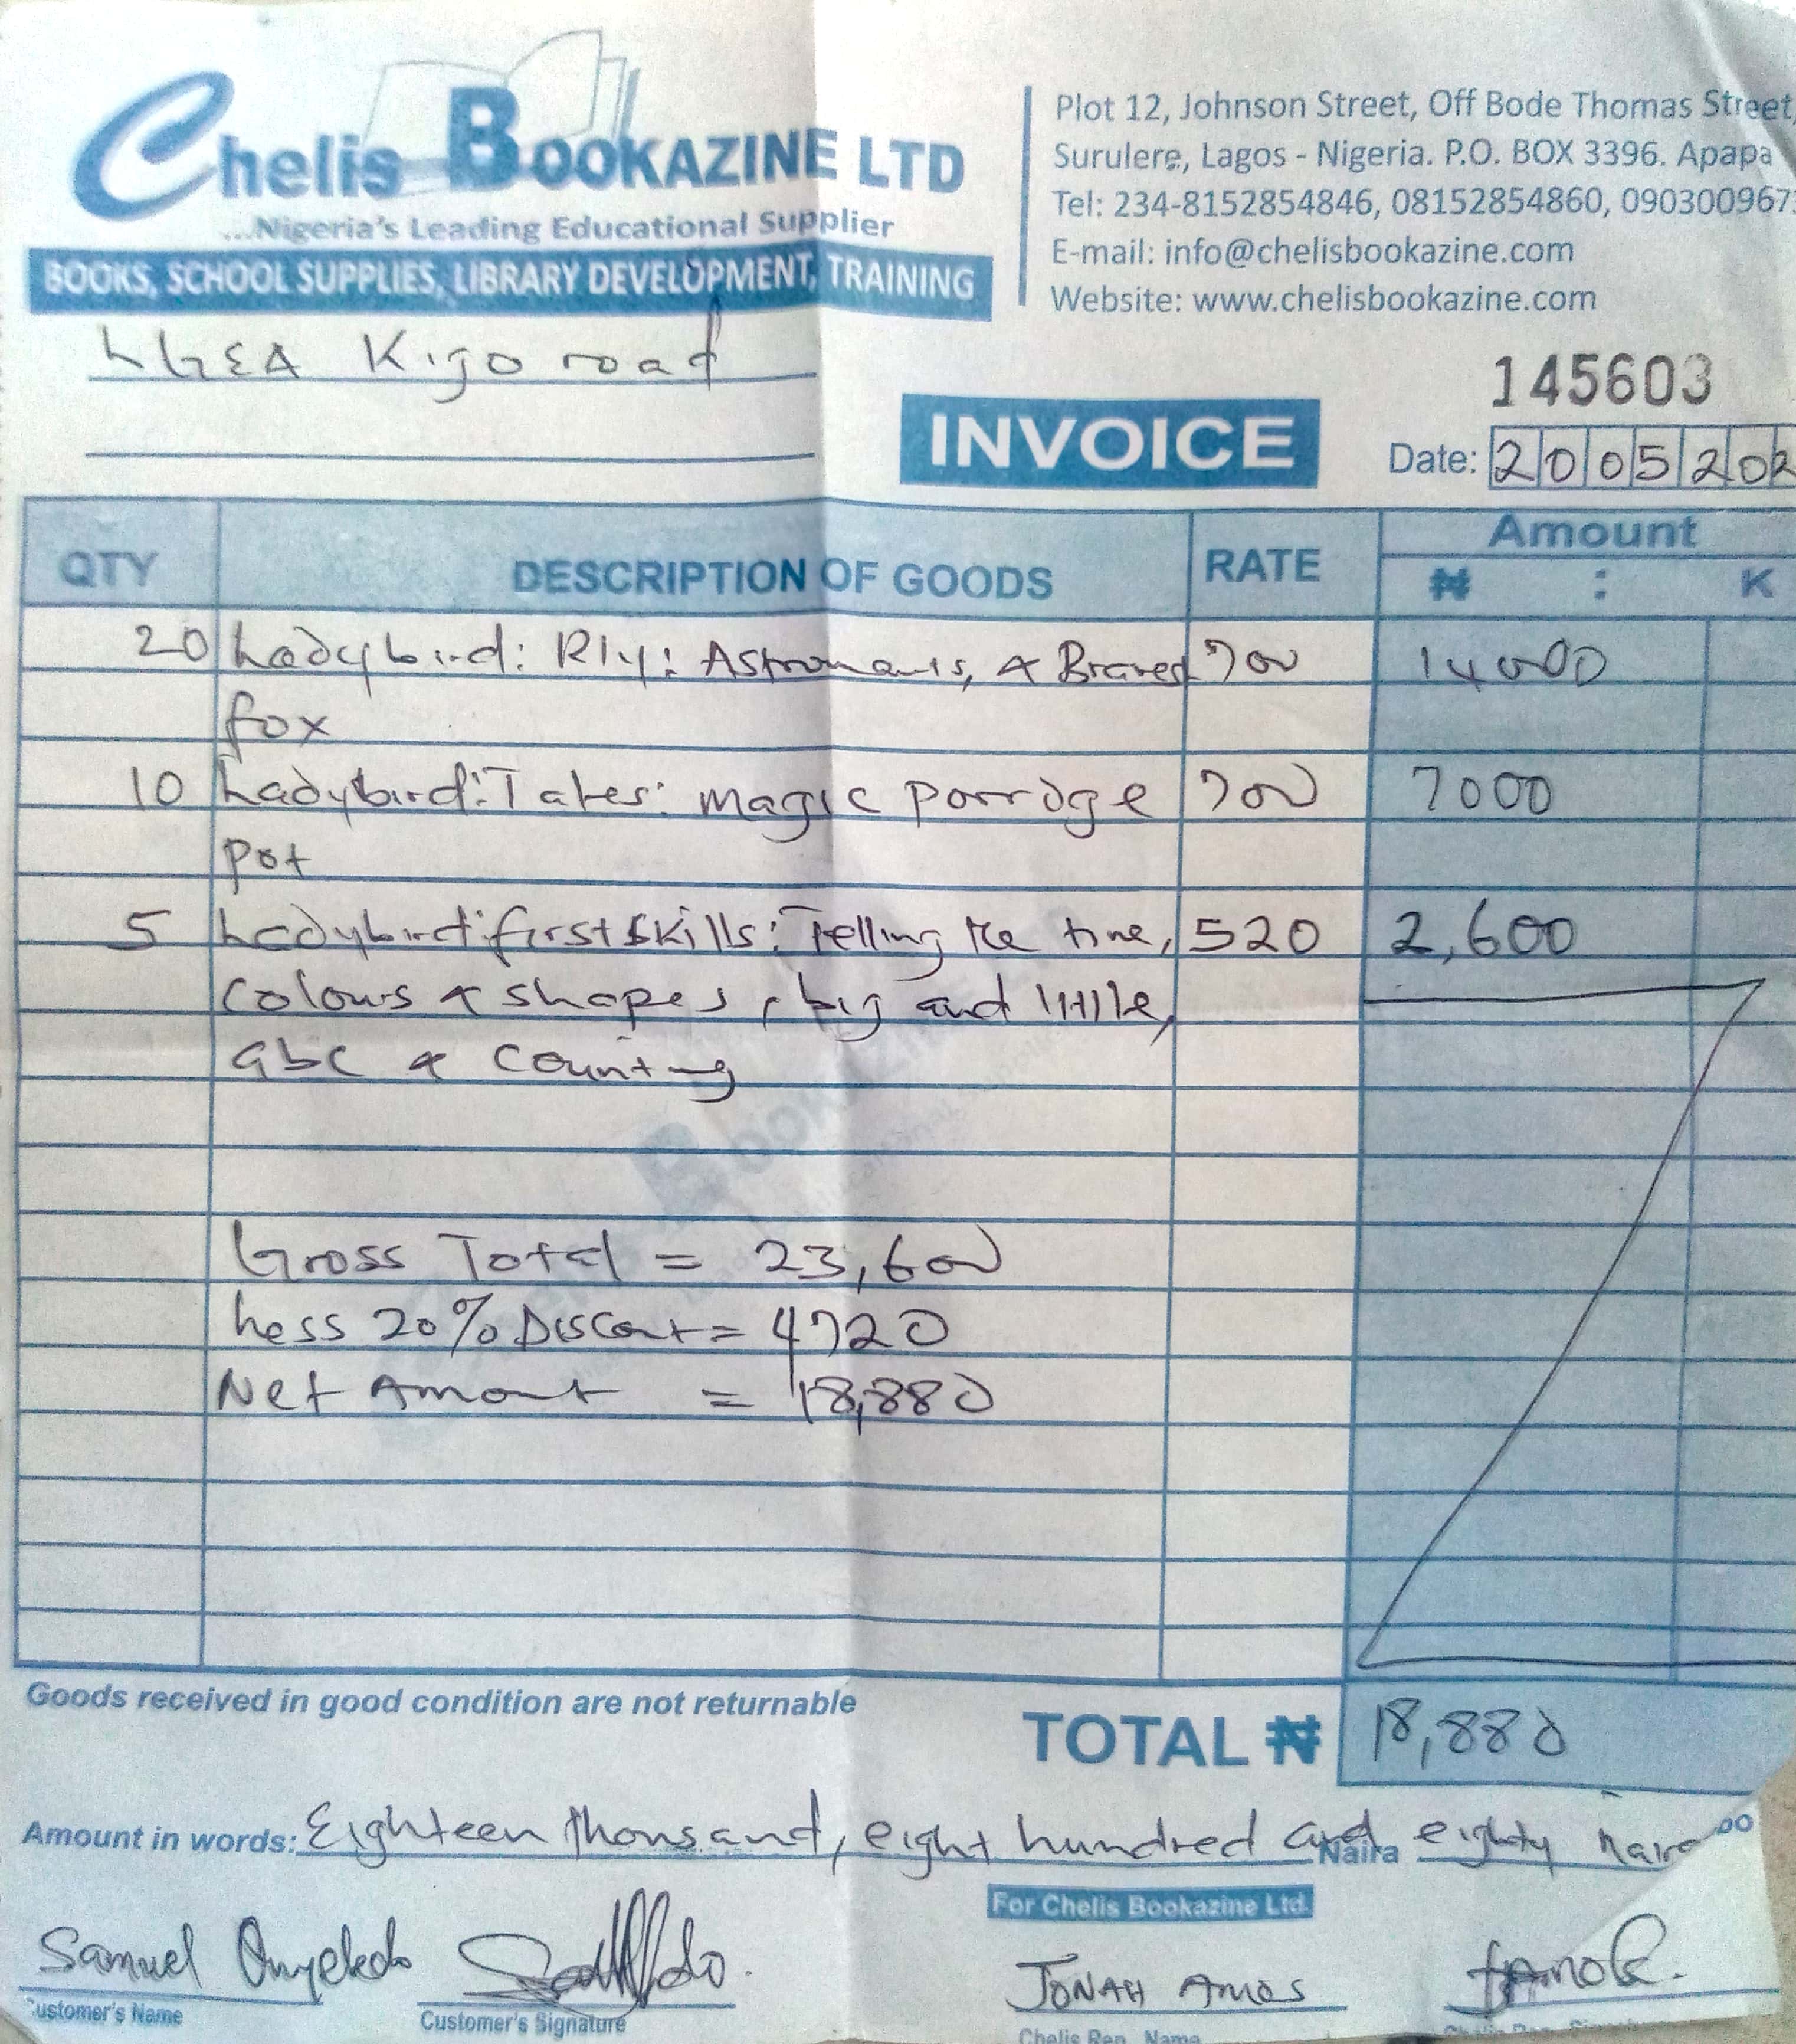 Chelis BOOKAZINE LTD
...Nigeria's Leading Educational Supplier
BOOKS, SCHOOL SUPPLIES, LIBRARY DEVELOPMENT, TRAINING
Plot 12, Johnson Street, Off Bode Thomas Street,
Surulere, Lagos - Nigeria. P.O. BOX 3396. Apapa
Tel: 234-8152854846, 08152854860, 090300967
E-mail: info@chelisbookazine.com
Website: www.chelisbookazine.com
LGEA Kigo road
145603
INVOICE
Date: 2005202
QTY DESCRIPTION OF GOODS RATE Amount
₦ : K
20 Ladybird: Rly: Astronauts, & Bravest 700 14000
fox
10 Ladybird: Tales: magic porridge 700 7000
pot
5 Ladybird: first skills: Telling the time, 520 2,600
colours & shapes, big and little,
abc & counting
Gross Total = 23,600
Less 20% Discount = 4720
Net Amount = 18,880
Goods received in good condition are not returnable
TOTAL ₦ 18,880
Amount in words: Eighteen thousand, eight hundred and Naira eighty Naira
For Chelis Bookazine Ltd.
Samuel JONAH AMOS
Customer's Name Customer's Signature Chelis Rep. Name